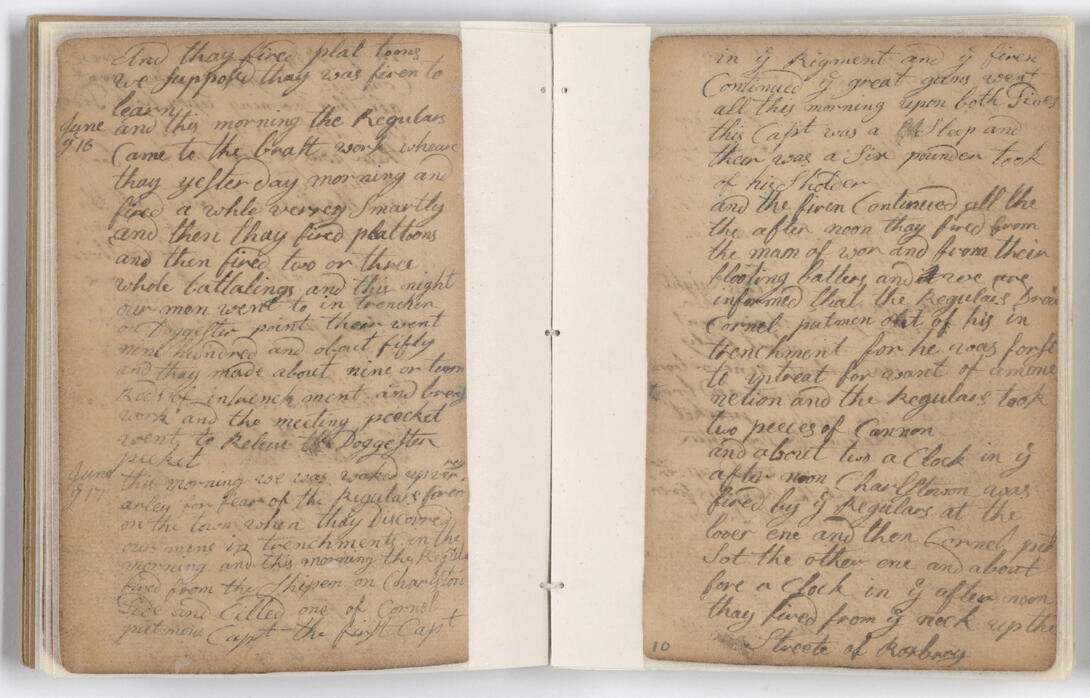 And thay fired plat toons
we supposd thay was firen to
learn
June
y 16
and this morning the Regulars
Came to the brast work wheare
thay yesterday morning and
fired a while verrey Smartly
and then thay fired plattoons
and then fired two or three
whole battalings and this night
our men went to in trenchen
on Doggester point their went
nine hundred and about fifty
and thay made about nine or
Rods of intrench ment and brest
work and the meeting peecket
went to Releve the Doggester
peeket
June
y 17
this morning we was waked up ver
rey
arley for fear of the Regulars
on the town when thay Discovred
our mens in trenchments in the
morning and this morning the
fired from the Shipen on Charlston
Side and Cilled one of Cornel
putmons Capt the first Capt
in y Rigment and y firen
Continued y great guns went
all this morning upon both Sides
this Capt was a Sleep and
their was a Six pounder took
of his Sholder
and the firen Continued all the
the after noon thay fired from
the mam of wor and from their
flooting battery and we are
informed that the Regulars Drove
Cornel putmen out of his in
trenchment for he was forst
to retreat for want of amone
netion and the Regulars took
two peeces of Cannon
and about two a Clock in y
after noon Charlstown was
fired by y Regulars at the
lover ene and then Cornel
Sot the other ene and about
fore a Clock in y after noon
thay fired from y neck up the
Streete of Roxbury
10